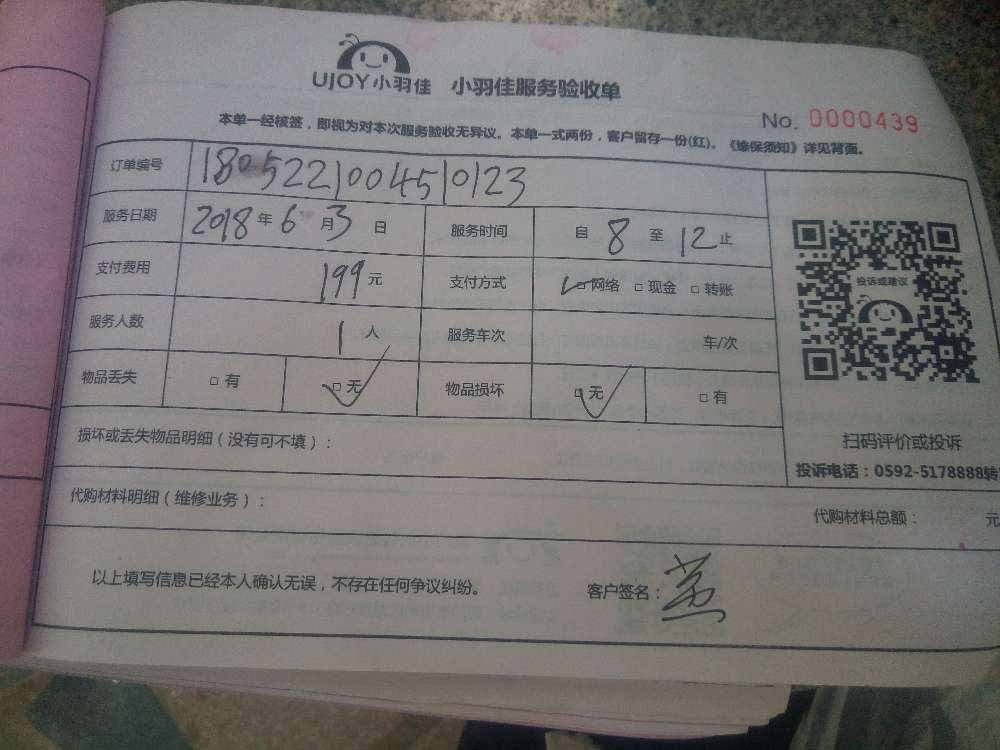 UJOY小羽佳 小羽佳服务验收单
No. 0000439
本单一经核签，即视为对本次服务验收无异议。本单一式两份，客户留存一份(红)。《维保须知》详见背面。
订单编号 1805221004510123
服务日期 2018年6月3日 服务时间 自8至12止
支付费用 199元 支付方式 □网络 □现金 □转账
投诉或建议
服务人数 1人 服务车次 车/次
物品丢失 □有 □无 物品损坏 □无 □有
扫码评价或投诉
损坏或丢失物品明细（没有可不填）：
投诉电话：0592-5178888转
代购材料明细（维修业务）：
代购材料总额： 元
以上填写信息已经本人确认无误，不存在任何争议纠纷。 客户签名：